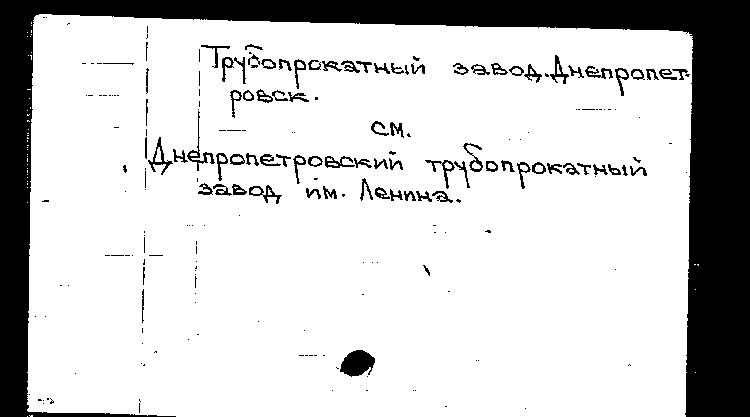 Трубопрокатный завод. Днепропет-
ровск.
см.
Днепропетровский трубопрокатный
завод им. Ленина.